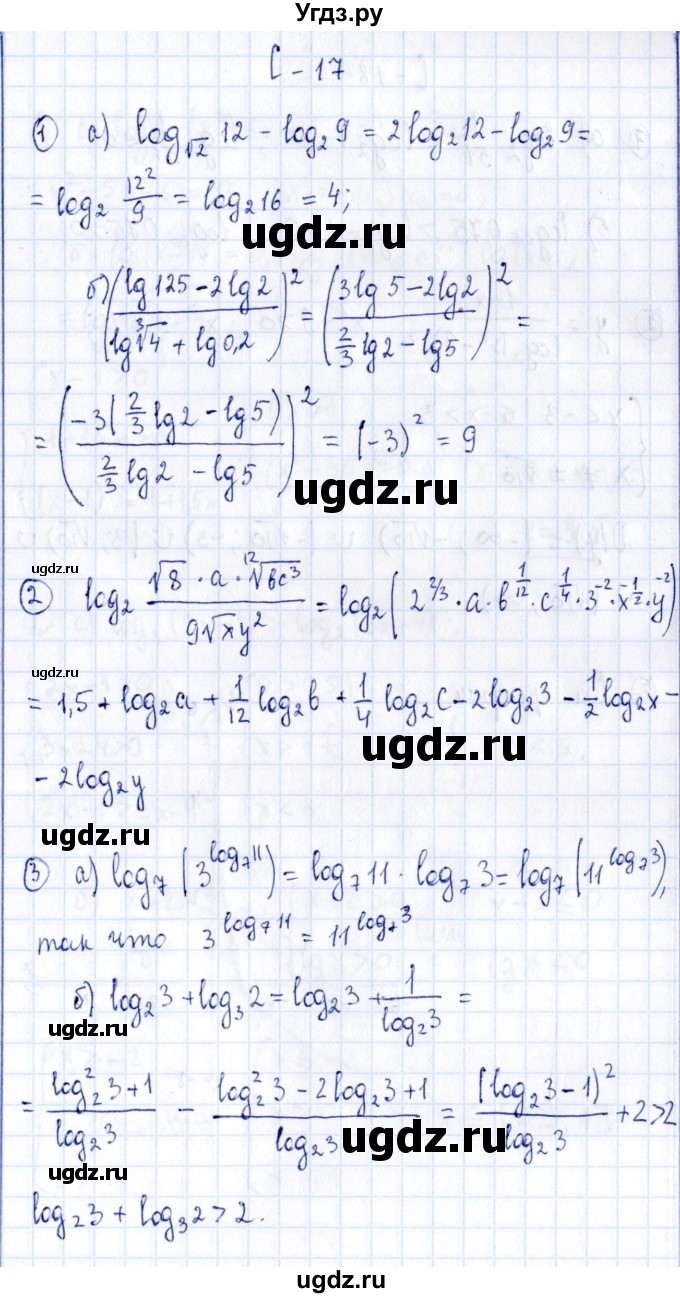 Угдз.ру
С - 17
① а) log_{√2} 12 - log₂ 9 = 2log₂12 - log₂ 9 =
= log₂ 12²/9 = log₂16 = 4;
ugdz.ru
б) ((lg125 - 2lg2)/(lg∛4 + lg0,2))² = ((3lg5 - 2lg2)/(⅔lg2 - lg5))² =
= ((-3(⅔lg2 - lg5))/(⅔lg2 - lg5))² = (-3)² = 9
ugdz.ru
ugdz.ru
② log₂ (√8 · a · ¹²√(bc³))/(9√x y²) = log₂(2^{2/3} · a · b^{1/12} · c^{1/4} · 3^{-2} · x^{-1/2} · y^{-2})
ugdz.ru
= 1,5 + log₂a + 1/12 log₂b + 1/4 log₂c - 2log₂3 - 1/2 log₂x -
ugdz.ru
- 2log₂y
ugdz.ru
③ а) log₇(3^{log₇11}) = log₇11 · log₇3 = log₇(11^{log₇3}),
так что 3^{log₇11} = 11^{log₇3}
б) log₂3 + log₃2 = log₂3 + 1/(log₂3) =
ugdz.ru
= (log₂²3 + 1)/(log₂3) - (log₂²3 - 2log₂3 + 1)/(log₂3) = (log₂3 - 1)²/(log₂3) + 2 > 2
ugdz.ru
ugdz.ru
log₂3 + log₃2 > 2.
ugdz.ru